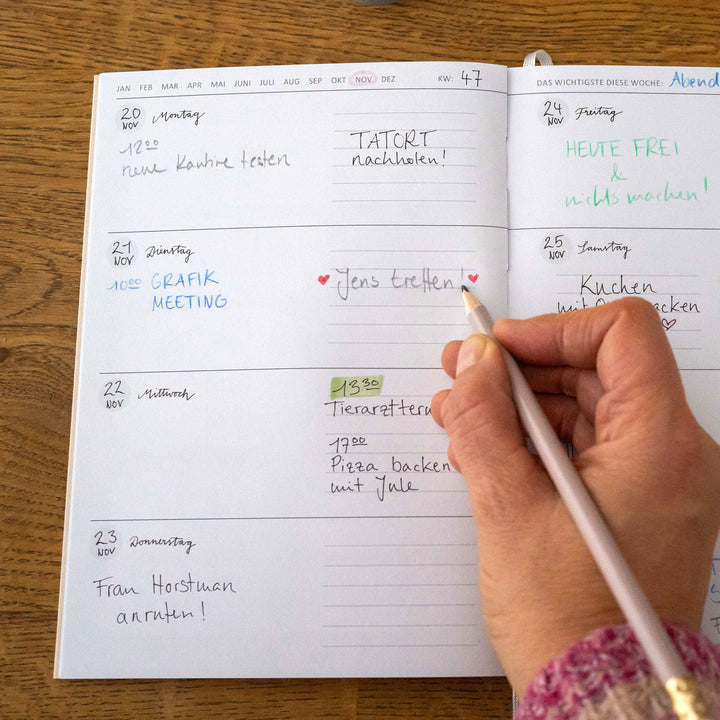 JAN FEB MAR APR MAI JUNI JULI AUG SEP OKT NOV DEZ KW: 47
20 NOV Montag
12:00
neue Kantine testen
TATORT
nachholen!
21 NOV Dienstag
10:00 GRAFIK
MEETING
Jens treffen!
22 NOV Mittwoch
13:30
17:00
Pizza backen
mit Jule
23 NOV Donnerstag
Frau Horstman
anrufen!
DAS WICHTIGSTE DIESE WOCHE: Abend
24 NOV Freitag
HEUTE FREI
&
nichts machen!
25 NOV Samstag
Kuchen
mit